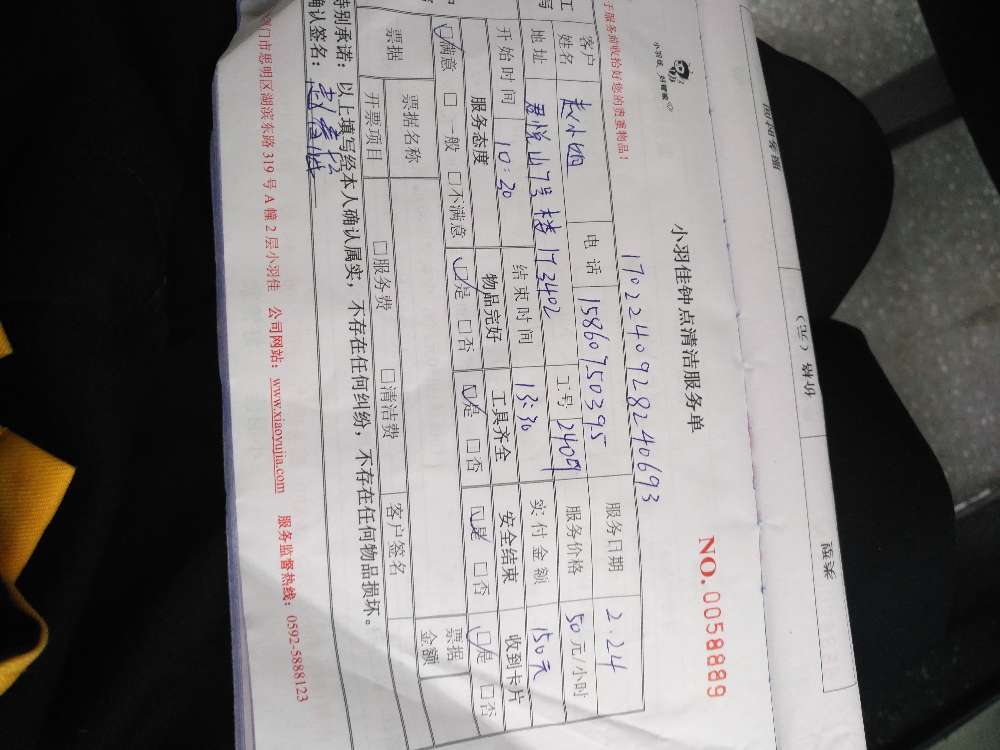 于服务前收拾好您的贵重物品！
小羽佳，好管家
小羽佳钟点清洁服务单
NO.0058889
170224092824069３
客户姓名 赵小姐 电话 15860750395 服务日期 2.24
地址 君悦山7号楼173402 工号 服务价格 50元/小时
开始时间 10:30 结束时间 13:30 实付金额 150元
服务态度 物品完好 工具齐全 安全结束 收到卡片
☑满意 □一般 □不满意 ☑是 □否 ☑是 □否 ☑是 □否 ☑是 □否
票据 票据名称 票据金额
开票项目 □服务费 □清洁费 客户签名
特别承诺：以上填写经本人确认属实，不存在任何纠纷，不存在任何物品损坏。
确认签名：
门市思明区湖滨东路319号A幢2层小羽佳 公司网站：www.xiaoyujia.com 服务监督热线：0592-5888123